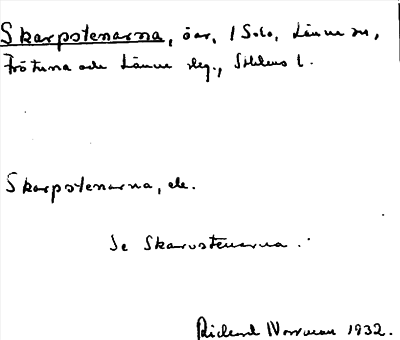 Skarpstenarna, öar, 1 Solo, Länna sn,
Frötuna och Länna slg., Sthlms l.
Skarpstenarna, ek.
Se Skarvstenarna.
Rickard Norrman 1932.